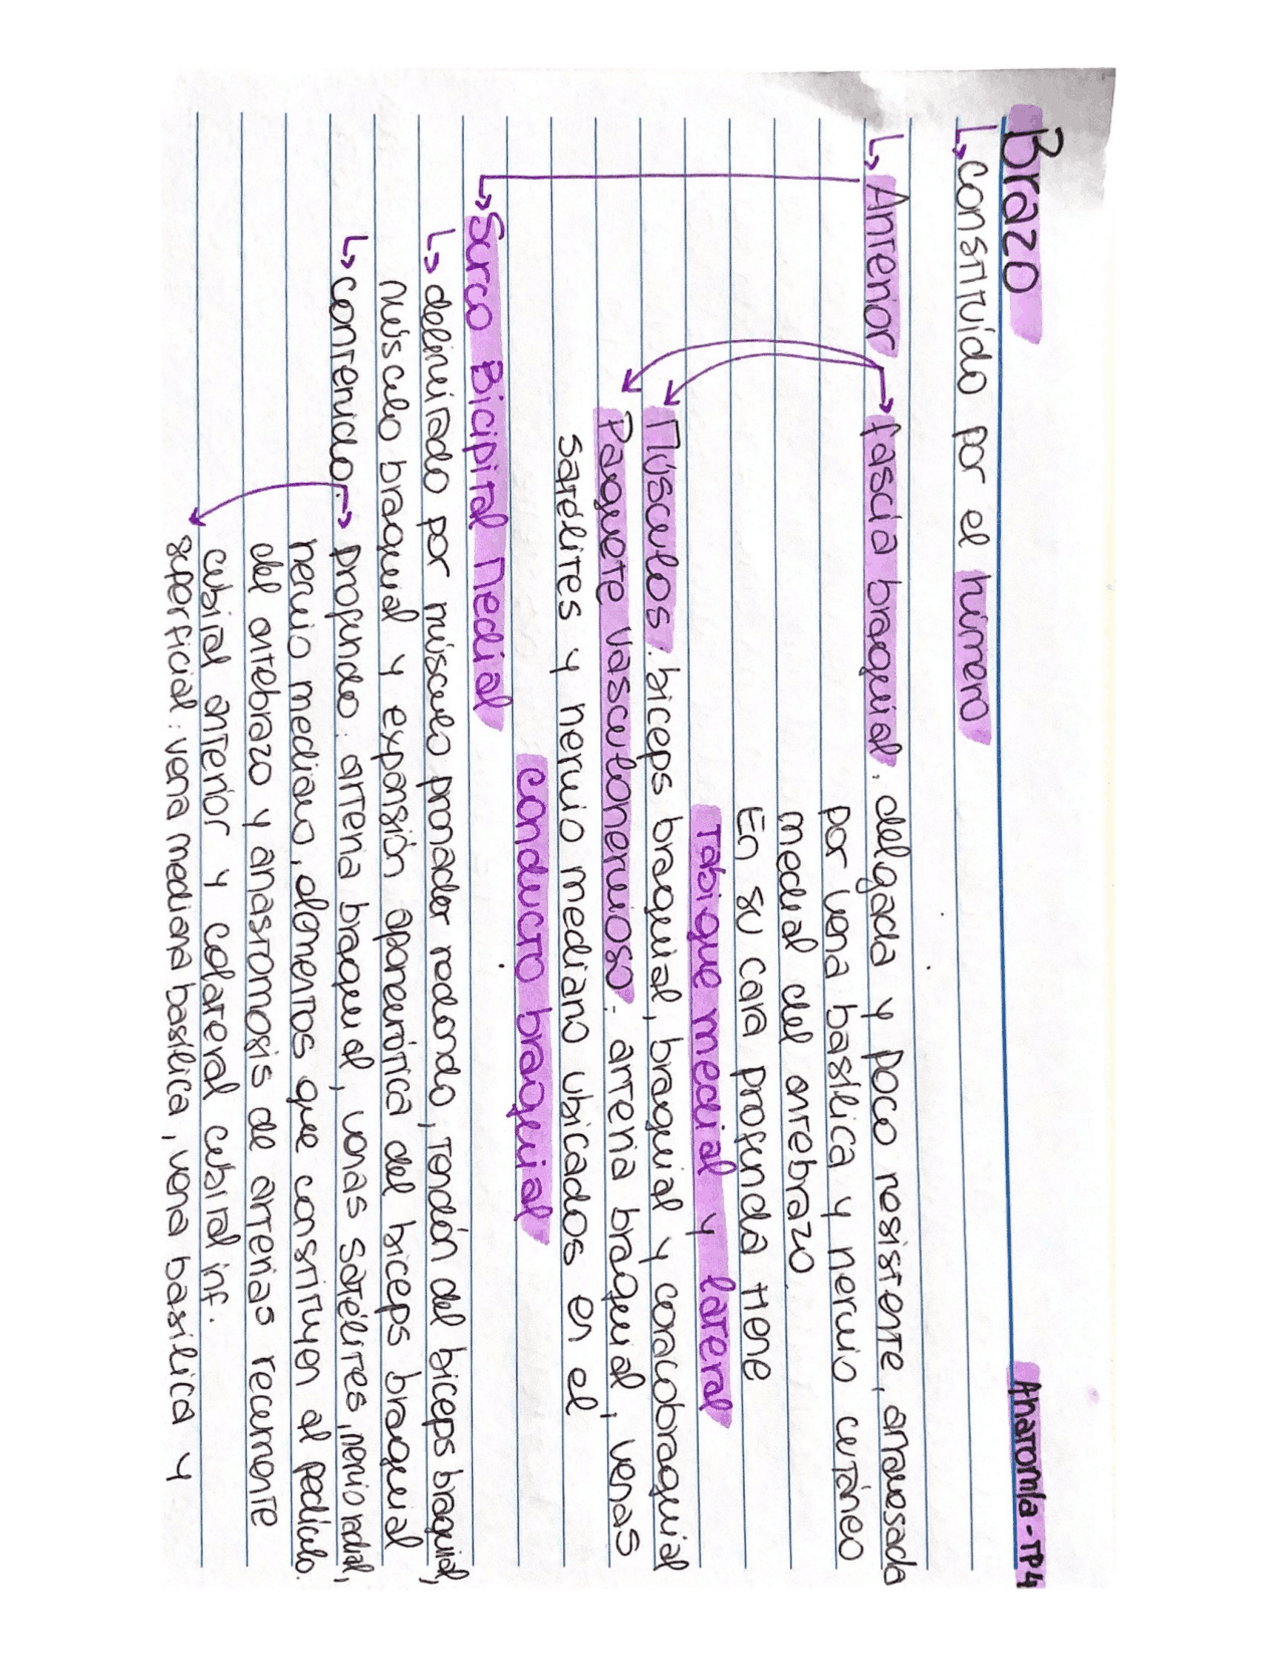 Anatomía - TP4
Brazo
↳ constituido por el húmero
↳ Anterior → fascia braquial: delgada y poco resistente, atravesada
por vena basílica y nervio cutáneo
medial del antebrazo.
En su cara profunda tiene
tabique medial y lateral
Músculos: biceps braquial, braquial y coracobraquial
Paquete vasculonervioso: arteria braquial, venas
satélites y nervio mediano ubicados en el
conducto braquial
↳ Surco Bicipital Medial
↳ delimitado por músculo pronador redondo, tendón del biceps braquial,
músculo braquial y expansión aponeurótica del biceps braquial
↳ contenido: → profundo: arteria braquial, venas satélites, nervio radial,
nervio mediano, elementos que constituyen al pedículo.
del antebrazo y anastomosis de arterias recurrente
cubital anterior y colateral cubital inf.
superficial: vena mediana basílica, vena basílica y